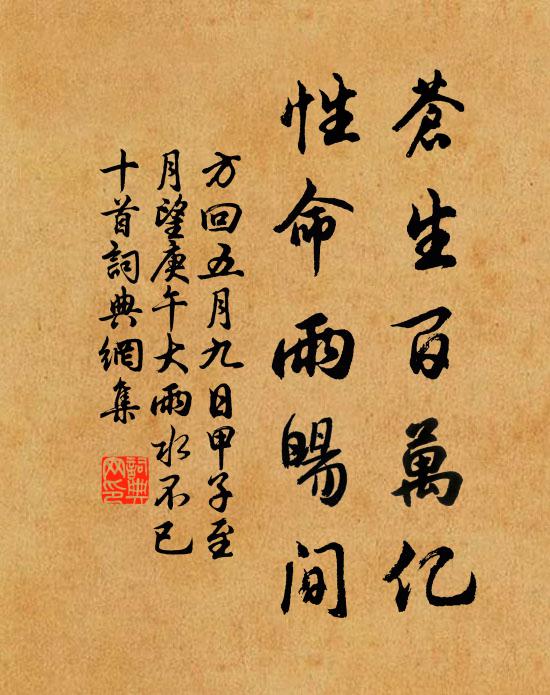 蒼生百萬亿
性命雨暘間
方回五月九日甲子至
月望庚午大雨水不已
十首詞典網集
詞典